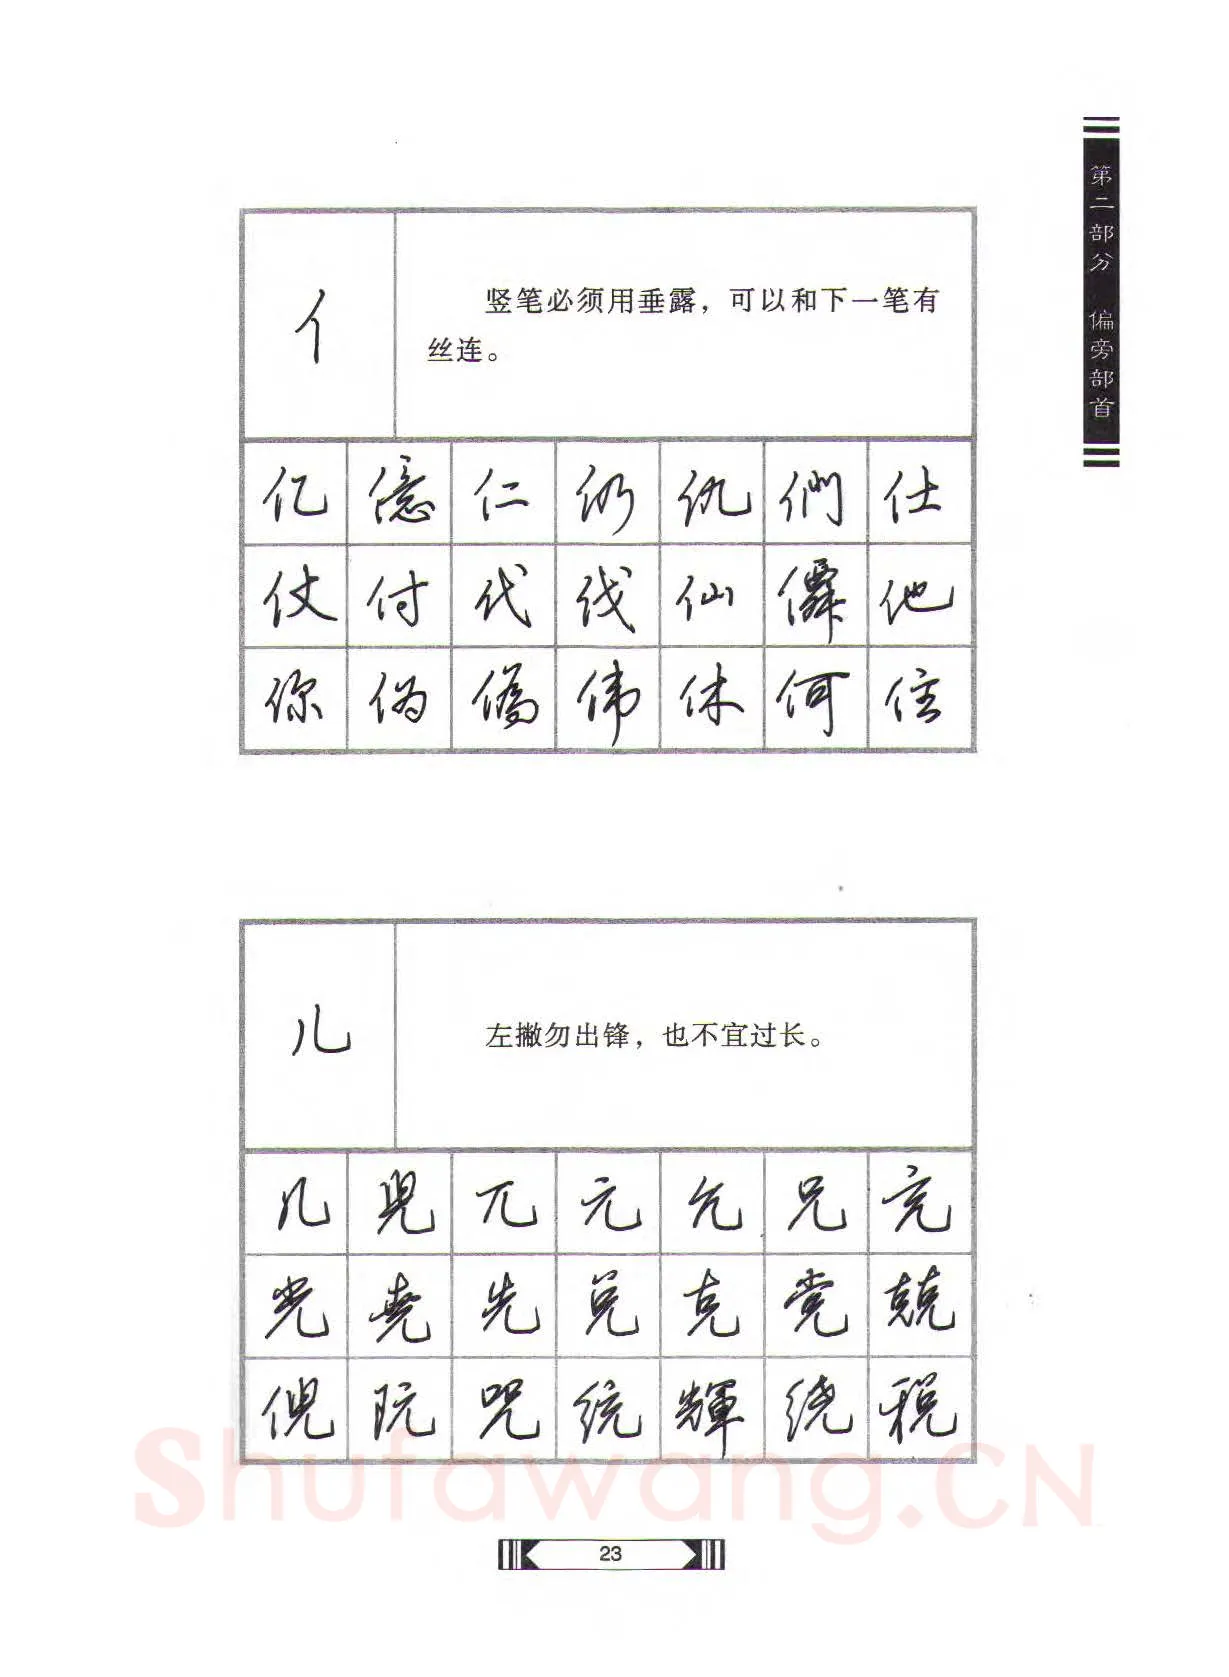 第二部分 偏旁部首
亻
竖笔必须用垂露，可以和下一笔有
丝连。
亿 億 仁 仍 仇 們 仕
仗 付 代 伐 仙 僊 他
你 伪 偽 伟 休 何 住
儿
左撇勿出锋，也不宜过长。
儿 兒 兀 元 允 兄 亮
光 堯 先 兑 克 党 兢
倪 阮 咒 统 輝 绕 税
23
Shufawang.CN